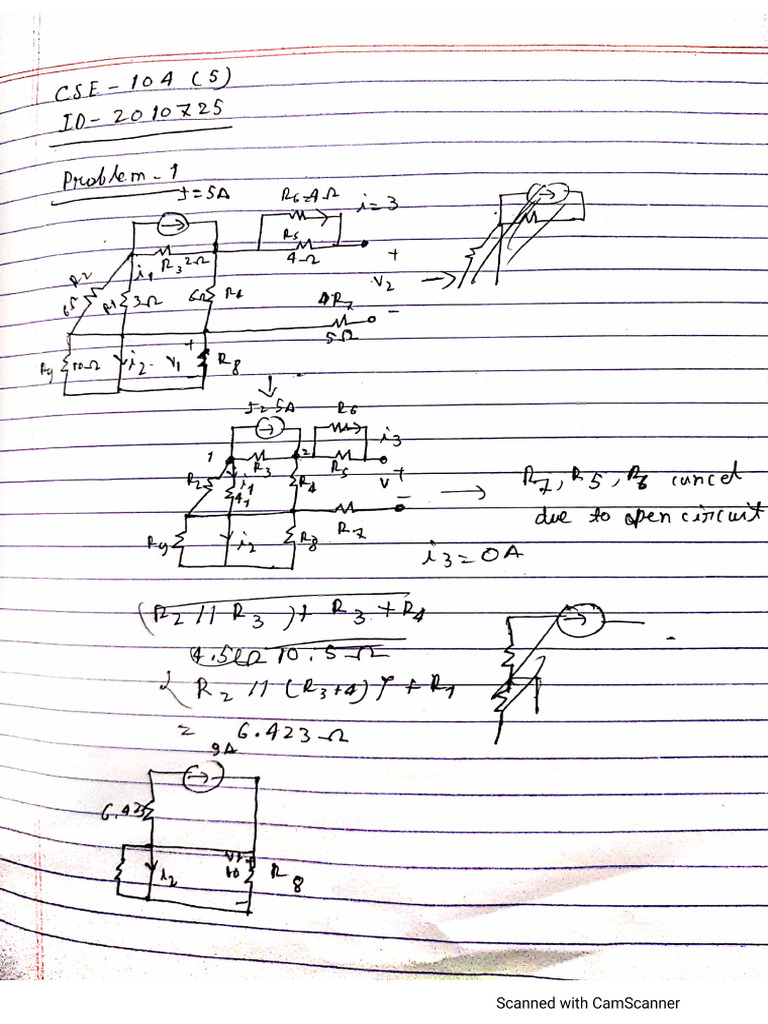 CSE-104 (5)
ID-2010725
Problem-1
J=5A
R6=4Ω
i=3
R5
4Ω
+
V2
-
R2
i1
R3 2Ω
R1 3Ω
6Ω R4
R7
5Ω
R9 10Ω
i2
-
V1
+
R8
J=5A
R6
i3
1
R3
2
R5
+
V
-
R2
i1
R4
R7
R9
i2
R8
R7, R5, R6 cancel
due to open circuit
i3=0A
(R2 // R3) + R3 + R4
4.5Ω 10.5Ω
{ R2 // (R3+4) } + R1
= 6.423Ω
9A
6.423
i2
V1
10
R8
Scanned with CamScanner